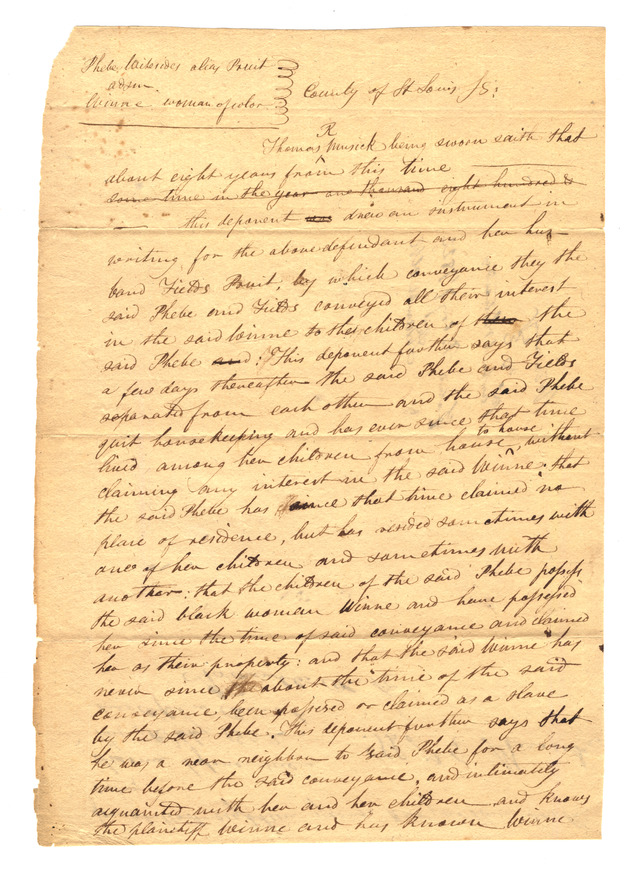 Phebe Whitesides alias Pruit
adsm.
Winne woman of color
County of St Louis SS:
Thomas R Musick being sworn saith that
about eight years from this time
some time in the year one thousand eight hundred &
this deponent was drew an instrument in
writing for the above defendant and her hus-
band Fields Pruit, by which conveyance they the
said Phebe and Fields conveyed all their interest
in the said Winne to the children of the
said Phebe and: This deponent further says that
a few days thereafter the said Phebe and Fields
separated from each other and the said Phebe
quit housekeeping and has ever since that time
lived among her children from house to house, without
claiming any interest in the said Winne: that
the said Phebe has since that time claimed no
place of residence, but has resided sometimes with
one of her children and sometimes with
another: that the children of the said Phebe possess
the said black woman Winne and have possessed
her since the time of said conveyance and claimed
her as their property: and that the said Winne has
never since the about the time of the said
conveyance, been possessed or claimed as a slave
by the said Phebe. This deponent further says that
he was a near neighbor to said Phebe for a long
time before the said conveyance, and intimately
acquanited with her and her children and knows
the plaintiff Winne and has known Winne